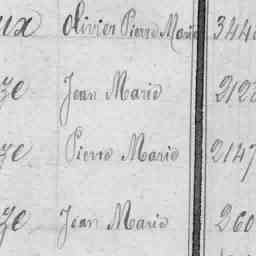 ux Olivier Pierre Marie 344
ze Jean Marie 212
ze Pierre Marie 2147
ze Jean Marie 260